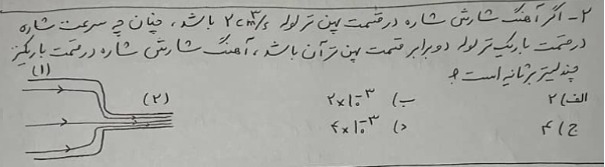 ۲- اگر آهنگ شارش شاره در قسمت پهن تر لوله ۲ cm³/s باشد، چنان چه سرعت شاره
در قسمت باریک تر لوله دو برابر قسمت پهن تر آن باشد، آهنگ شارش شاره در قسمت باریکتر
چند لیتر بر ثانیه است؟
(۱)
(۲)
الف) ۲
ب) ۲×۱۰⁻³
ج) ۴
د) ۴×۱۰⁻³